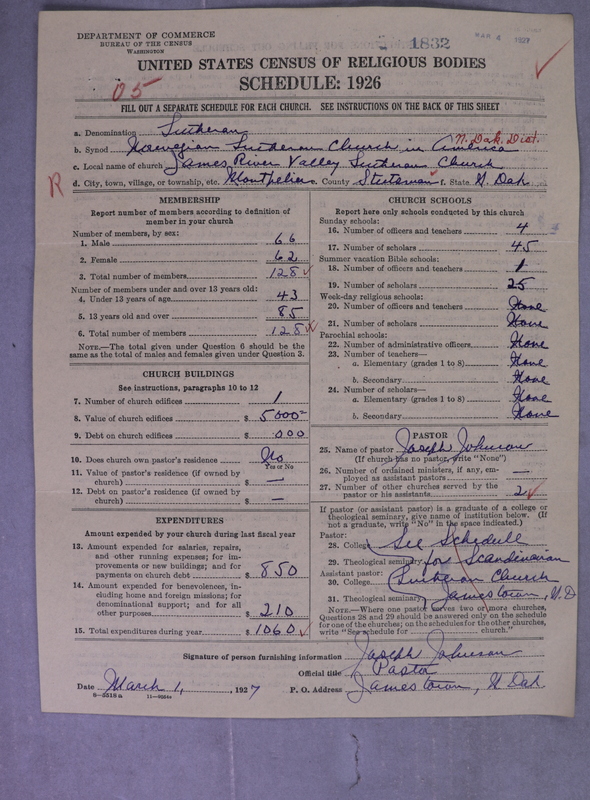 DEPARTMENT OF COMMERCE
BUREAU OF THE CENSUS
WASHINGTON
1832
MAR 4 1927
UNITED STATES CENSUS OF RELIGIOUS BODIES
SCHEDULE: 1926
05
FILL OUT A SEPARATE SCHEDULE FOR EACH CHURCH. SEE INSTRUCTIONS ON THE BACK OF THIS SHEET
a. Denomination Lutheran
b. Synod Norwegian Lutheran Church in America N. Dak. Dist.
c. Local name of church James River Valley Lutheran Church
R d. City, town, village, or township, etc. Montpelier e. County Stutsman f. State N. Dak.
MEMBERSHIP
Report number of members according to definition of member in your church
Number of members, by sex:
1. Male 66
2. Female 62
3. Total number of members 128
Number of members under and over 13 years old:
4. Under 13 years of age 43
5. 13 years old and over 85
6. Total number of members 128
NOTE.—The total given under Question 6 should be the
same as the total of males and females given under Question 3.
CHURCH BUILDINGS
See instructions, paragraphs 10 to 12
7. Number of church edifices 1
8. Value of church edifices $ 5000
9. Debt on church edifices $ 000
10. Does church own pastor's residence? No
Yes or No
11. Value of pastor's residence (if owned by
church) $ —
12. Debt on pastor's residence (if owned by
church) $ —
EXPENDITURES
Amount expended by your church during last fiscal year
13. Amount expended for salaries, repairs,
and other running expenses; for im-
provements or new buildings; and for
payments on church debt $ 850
14. Amount expended for benevolences, in-
cluding home and foreign missions; for
denominational support; and for all
other purposes $ 210
15. Total expenditures during year $ 1060
CHURCH SCHOOLS
Report here only schools conducted by this church
Sunday schools:
16. Number of officers and teachers 4
17. Number of scholars 45
Summer vacation Bible schools:
18. Number of officers and teachers 1
19. Number of scholars 25
Week-day religious schools:
20. Number of officers and teachers None
21. Number of scholars None
Parochial schools:
22. Number of administrative officers None
23. Number of teachers—
a. Elementary (grades 1 to 8) None
b. Secondary None
24. Number of scholars—
a. Elementary (grades 1 to 8) None
b. Secondary None
PASTOR
25. Name of pastor Joseph Johnson
(If church has no pastor, write "None")
26. Number of ordained ministers, if any, em-
ployed as assistant pastors —
27. Number of other churches served by the
pastor or his assistants 2
If pastor (or assistant pastor) is a graduate of a college or
theological seminary, give name of institution below. (If
not a graduate, write "No" in the space indicated.)
Pastor:
28. College See Schedule
29. Theological seminary for Scandinavian
Assistant pastor:
30. College Lutheran Church
31. Theological seminary Jamestown, N.D
NOTE.—Where one pastor serves two or more churches,
Questions 28 and 29 should be answered only on the schedule
for one of the churches; on the schedules for the other churches,
write "See schedule for church."
Signature of person furnishing information Joseph Johnson
Official title Pastor
Date March 1, 1927 P. O. Address Jamestown, N Dak